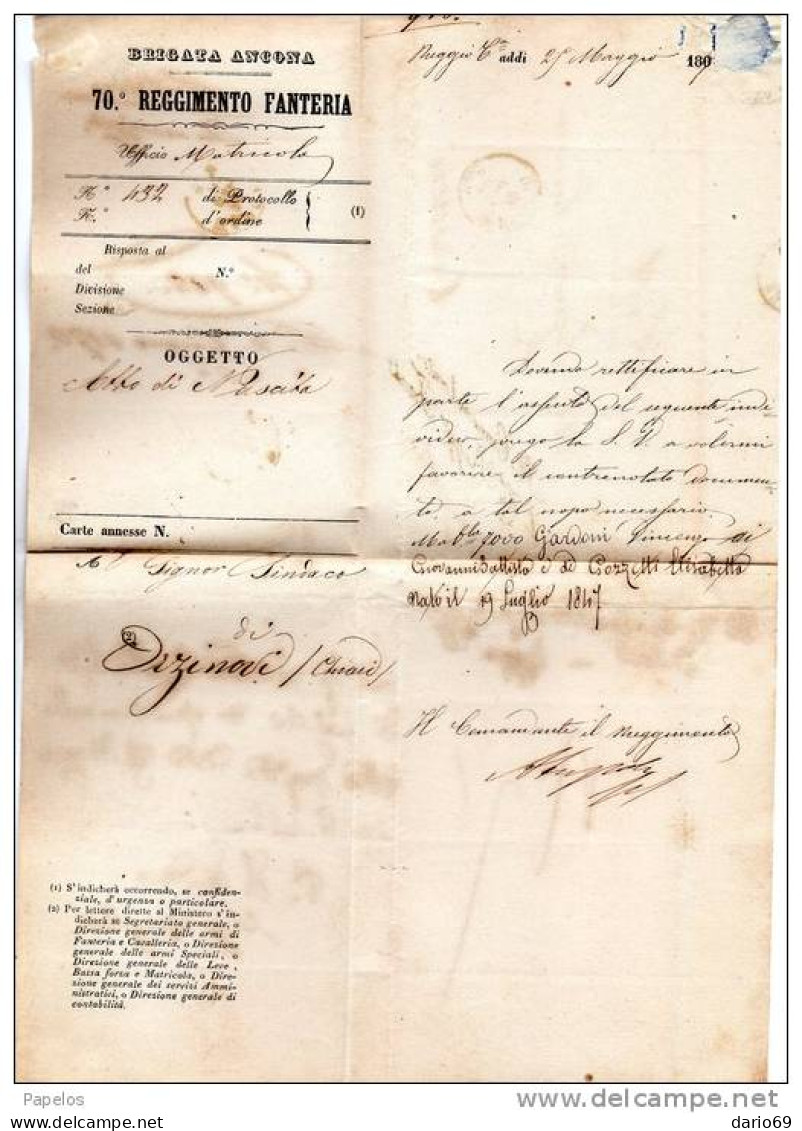 BRIGATA ANCONA
70.° REGGIMENTO FANTERIA
Ufficio Matricola
N.° 432 di Protocollo
N.° d'ordine
(1)
Risposta al
del N.°
Divisione
Sezione
OGGETTO
Atto di Nascita
Carte annesse N.
Al Signor Sindaco
di
(2)
Orzinovi (Chiari)
(1) S'indicherà occorrendo, se confiden-
ziale, d'urgenza o particolare.
(2) Per lettere dirette al Ministero s'in-
dicherà se Segretariato generale, o
Direzione generale delle armi di
Fanteria e Cavalleria, o Direzione
generale delle armi Speciali, o
Direzione generale delle Leve,
Bassa forza e Matricola, o Dire-
zione generale dei servizi Ammi-
nistrativi, o Direzione generale di
contabilità.
Reggio C.a addì 25 Maggio 180
Dovendo rettificare in
parte l'assento del seguente indi
viduo, prego la S. V. a volermi
favorire il contronotato documen-
to, a tal uopo necessario.
7000 Gardoni Vincenzo di
Giovanni Battista e di Pozzetti Elisabetta
nato il 19 Luglio 1847
Il Comandante il Reggimento
Papelos
www.delcampe.net
dario69